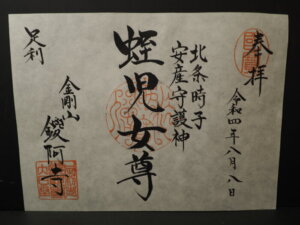 奉拝
令和四年八月八日
北条時子
安産守護神
蛭児女尊
足利
金剛山
鑁阿寺